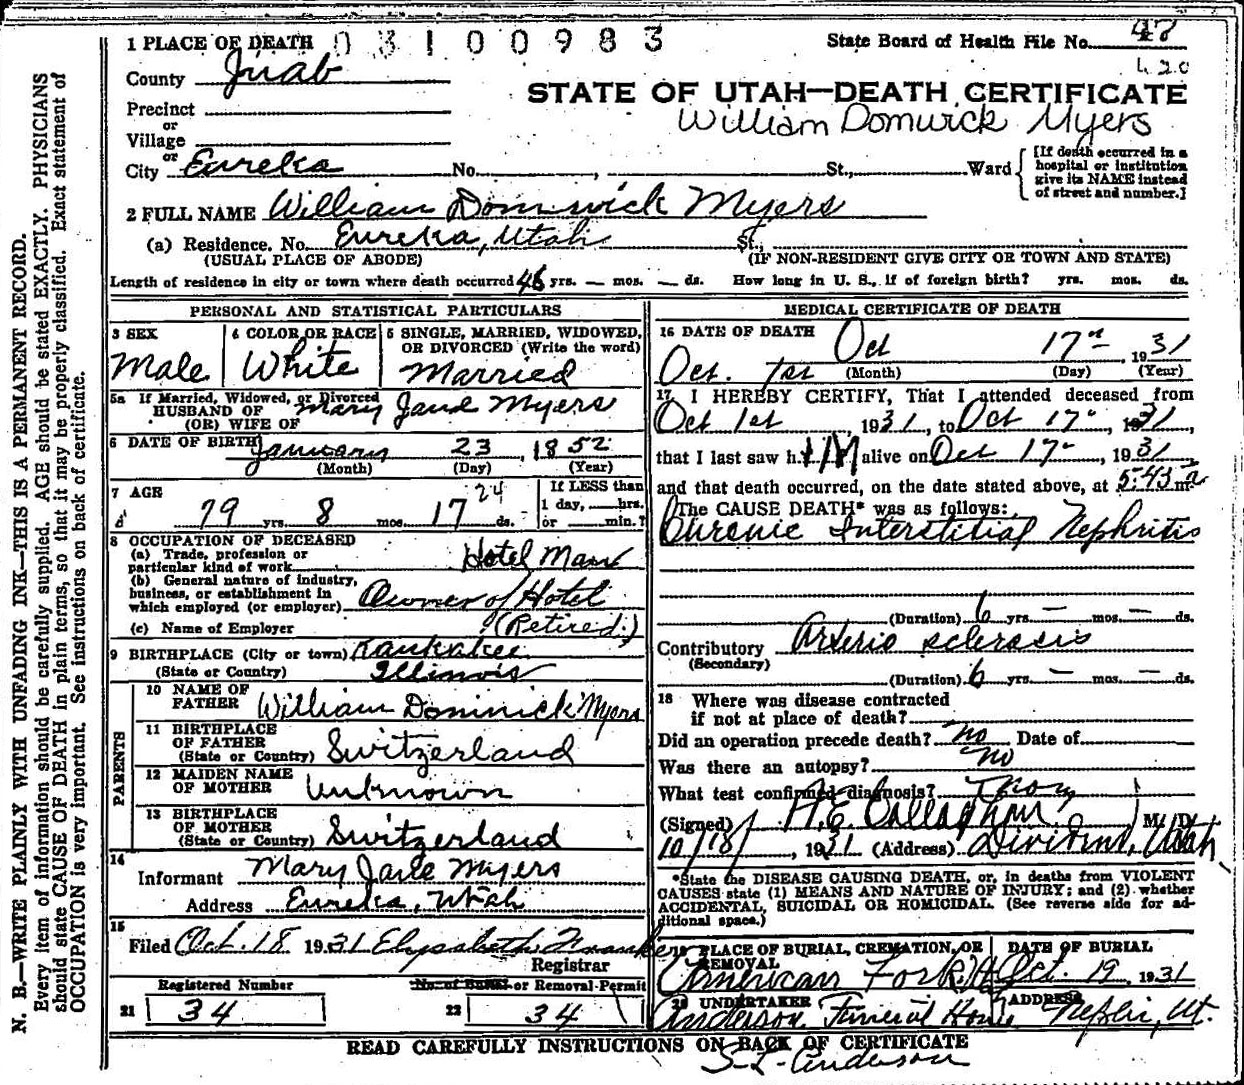 1 PLACE OF DEATH 03100983
State Board of Health File No. 47
420
County Juab
STATE OF UTAH—DEATH CERTIFICATE
Precinct
William Domwick Myers
or
Village
or
City Eureka No. , St., Ward
[If death occurred in a
hospital or institution
give its NAME instead
of street and number.]
2 FULL NAME William Domwick Myers
(a) Residence. No. Eureka, Utah St.,
(USUAL PLACE OF ABODE) (IF NON-RESIDENT GIVE CITY OR TOWN AND STATE)
Length of residence in city or town where death occurred 46 yrs. — mos. — ds. How long in U. S., if of foreign birth? yrs. mos. ds.
PERSONAL AND STATISTICAL PARTICULARS
3 SEX 4 COLOR OR RACE 5 SINGLE, MARRIED, WIDOWED,
OR DIVORCED (Write the word)
Male White Married
5a If Married, Widowed, or Divorced
HUSBAND OF Mary Jane Myers
(OR) WIFE OF
6 DATE OF BIRTH January 23, 1852
(Month) (Day) (Year)
7 AGE 24 If LESS than
79 yrs. 8 mos. 17 ds. 1 day, hrs.
or min.?
8 OCCUPATION OF DECEASED
(a) Trade, profession or
particular kind of work Hotel Man
(b) General nature of industry,
business, or establishment in
which employed (or employer) Owner of Hotel
(c) Name of Employer (Retired.)
9 BIRTHPLACE (City or town) Kankakee
(State or Country) Illinois
PARENTS
10 NAME OF
FATHER William Dominick Myers
11 BIRTHPLACE
OF FATHER
(State or Country) Switzerland
12 MAIDEN NAME
OF MOTHER Unknown
13 BIRTHPLACE
OF MOTHER
(State or Country) Switzerland
14
Informant Mary Jane Myers
Address Eureka, Utah
15
Filed Oct. 18 1931 Elysabeth
Registrar
Registered Number No. of Burial or Removal Permit
21 34 22 34
MEDICAL CERTIFICATE OF DEATH
16 DATE OF DEATH Oct 17th, 1931
Oct. 1st (Month) (Day) (Year)
17 I HEREBY CERTIFY, That I attended deceased from
Oct 1st, 1931, to Oct 17th, 1931,
that I last saw h IM alive on Oct 17th, 1931,
and that death occurred, on the date stated above, at 5:43 a m.
The CAUSE DEATH* was as follows:
Chronic Interstitial Nephritis
(Duration) 6 yrs. — mos. — ds.
Contributory Arterio sclerosis
(Secondary)
(Duration) 6 yrs. — mos. — ds.
18 Where was disease contracted
if not at place of death?
Did an operation precede death? no Date of
Was there an autopsy? no
What test confirmed diagnosis?
(Signed) H.E. Callaghan M. D.
10/18/, 1931 (Address) Dividend, Utah.
*State the DISEASE CAUSING DEATH, or, in deaths from VIOLENT
CAUSES state (1) MEANS AND NATURE OF INJURY; and (2) whether
ACCIDENTAL, SUICIDAL OR HOMICIDAL. (See reverse side for ad-
ditional space.)
19 PLACE OF BURIAL, CREMATION, OR DATE OF BURIAL
REMOVAL
American Fork Oct. 19 1931
20 UNDERTAKER ADDRESS
Anderson Funeral Home Nephi, Ut.
READ CAREFULLY INSTRUCTIONS ON BACK OF CERTIFICATE
S. L. Anderson
N. B.—WRITE PLAINLY WITH UNFADING INK—THIS IS A PERMANENT RECORD.
Every item of information should be carefully supplied. AGE should be stated EXACTLY. PHYSICIANS
should state CAUSE OF DEATH in plain terms, so that it may be properly classified. Exact statement of
OCCUPATION is very important. See instructions on back of certificate.